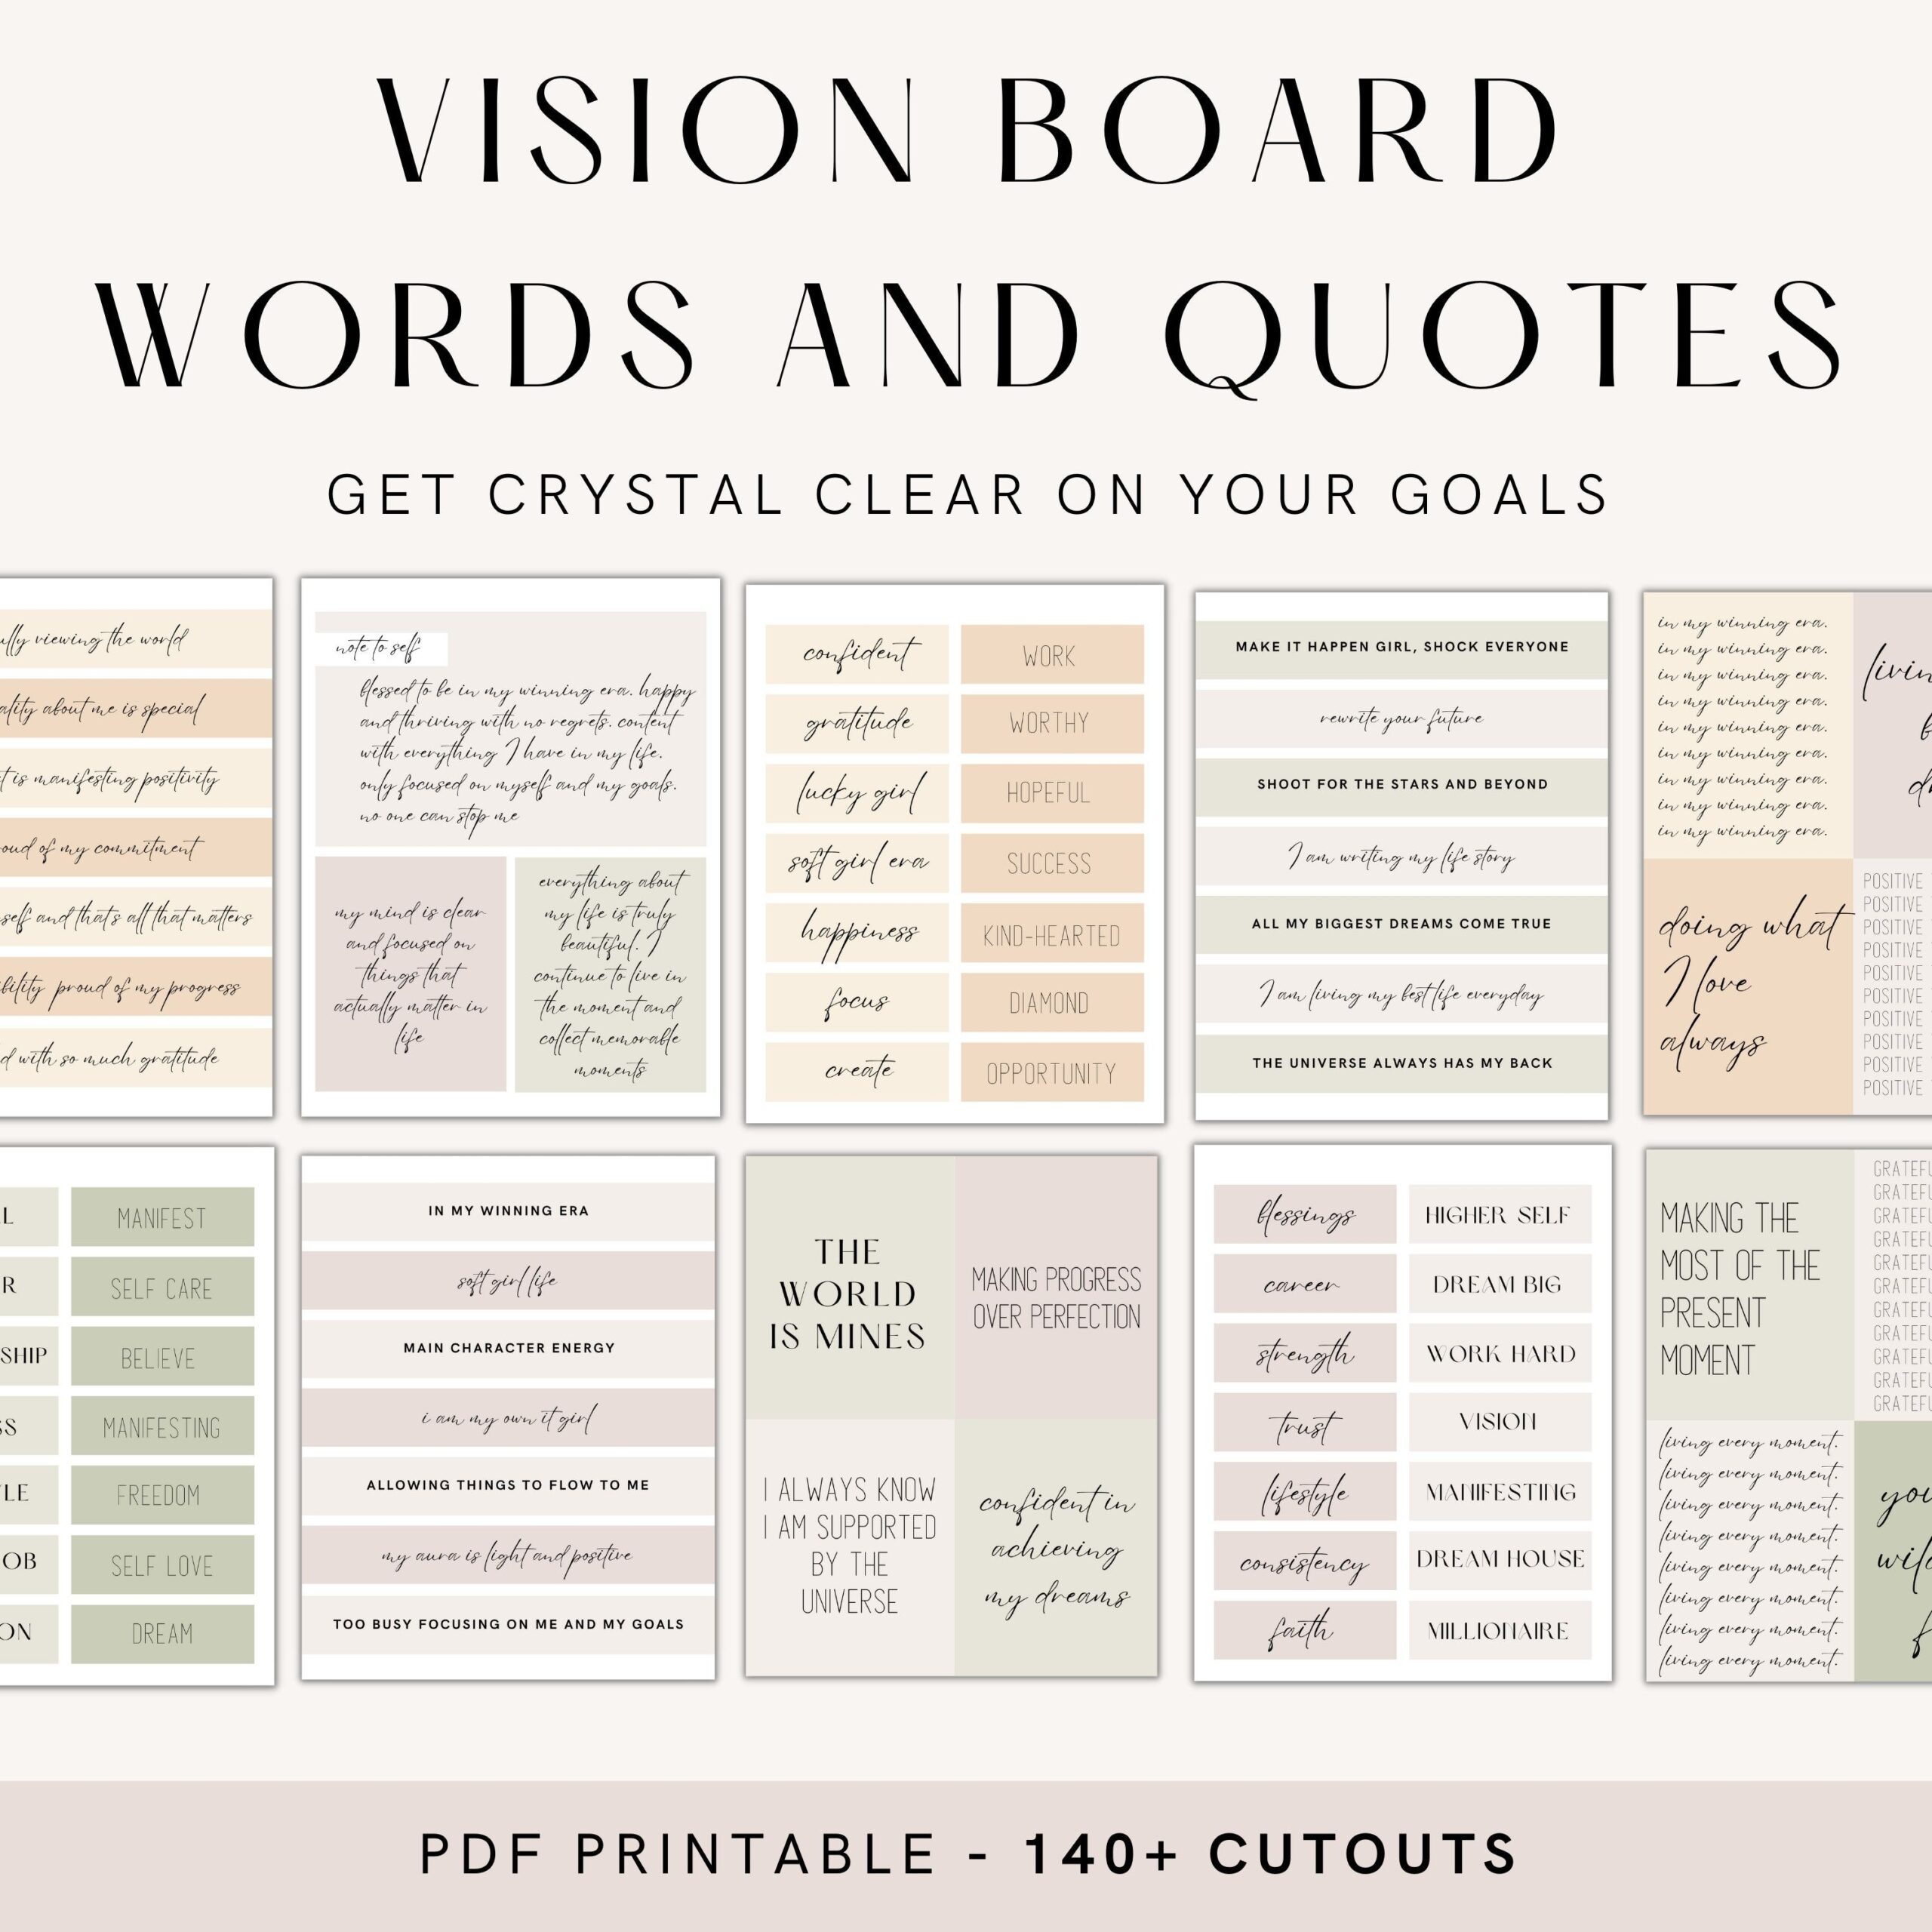 VISION BOARD
WORDS AND QUOTES
GET CRYSTAL CLEAR ON YOUR GOALS
viewing the world
about me is special
is manifesting positivity
of my commitment
and that's all that matters
proud of my progress
with so much gratitude
note to self
blessed to be in my winning era. happy
and thriving with no regrets. content
with everything I have in my life.
only focused on myself and my goals.
no one can stop me
my mind is clear
and focused on
things that
actually matter in
life
everything about
my life is truly
beautiful. I
continue to live in
the moment and
collect memorable
moments
confident
gratitude
lucky girl
soft girl era
happiness
focus
create
WORK
WORTHY
HOPEFUL
SUCCESS
KIND-HEARTED
DIAMOND
OPPORTUNITY
MAKE IT HAPPEN GIRL, SHOCK EVERYONE
rewrite your future
SHOOT FOR THE STARS AND BEYOND
I am writing my life story
ALL MY BIGGEST DREAMS COME TRUE
I am living my best life everyday
THE UNIVERSE ALWAYS HAS MY BACK
in my winning era.
in my winning era.
in my winning era.
in my winning era.
in my winning era.
in my winning era.
in my winning era.
in my winning era.
in my winning era.
doing what
I love
always
POSITIVE
POSITIVE
POSITIVE
POSITIVE
POSITIVE
POSITIVE
POSITIVE
POSITIVE
POSITIVE
POSITIVE
MANIFEST
SELF CARE
BELIEVE
MANIFESTING
FREEDOM
SELF LOVE
DREAM
IN MY WINNING ERA
soft girl life
MAIN CHARACTER ENERGY
i am my own it girl
ALLOWING THINGS TO FLOW TO ME
my aura is light and positive
TOO BUSY FOCUSING ON ME AND MY GOALS
THE
WORLD
IS MINES
MAKING PROGRESS
OVER PERFECTION
I ALWAYS KNOW
I AM SUPPORTED
BY THE
UNIVERSE
confident in
achieving
my dreams
blessings
career
strength
trust
lifestyle
consistency
faith
HIGHER SELF
DREAM BIG
WORK HARD
VISION
MANIFESTING
DREAM HOUSE
MILLIONAIRE
MAKING THE
MOST OF THE
PRESENT
MOMENT
living every moment.
living every moment.
living every moment.
living every moment.
living every moment.
living every moment.
living every moment.
living every moment.
PDF PRINTABLE - 140+ CUTOUTS